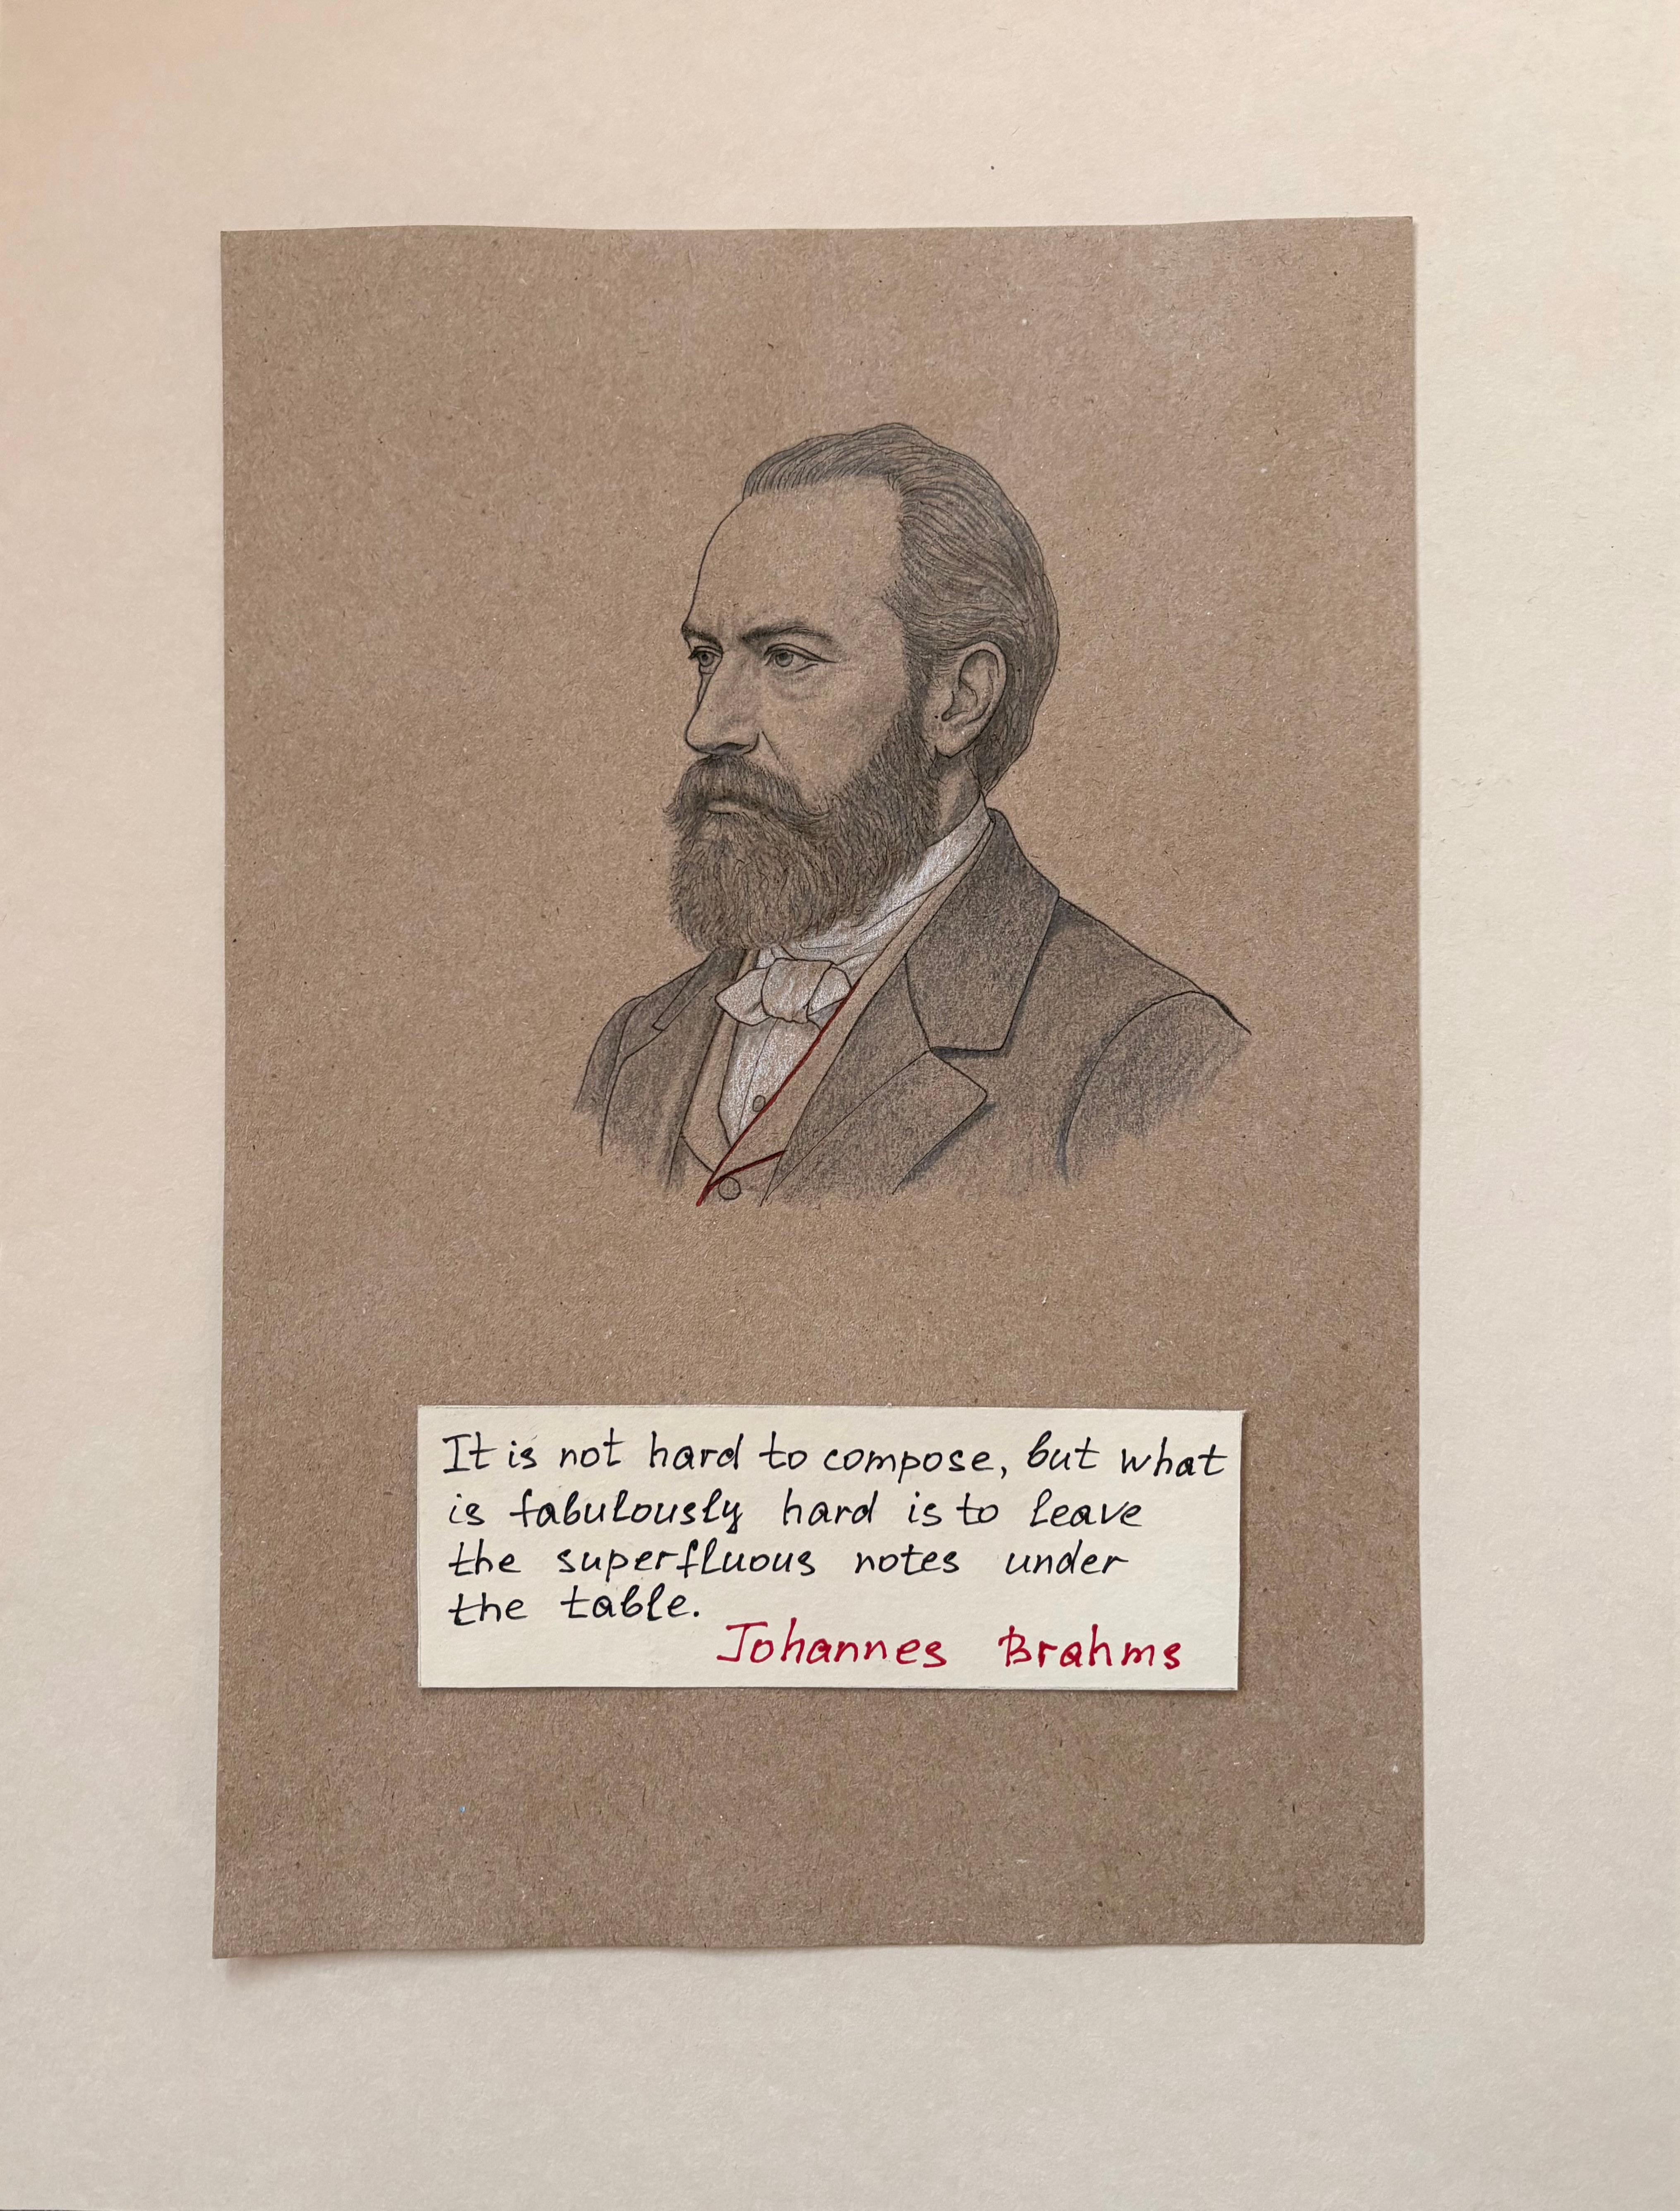 It is not hard to compose, but what
is fabulously hard is to leave
the superfluous notes under
the table.
Johannes Brahms